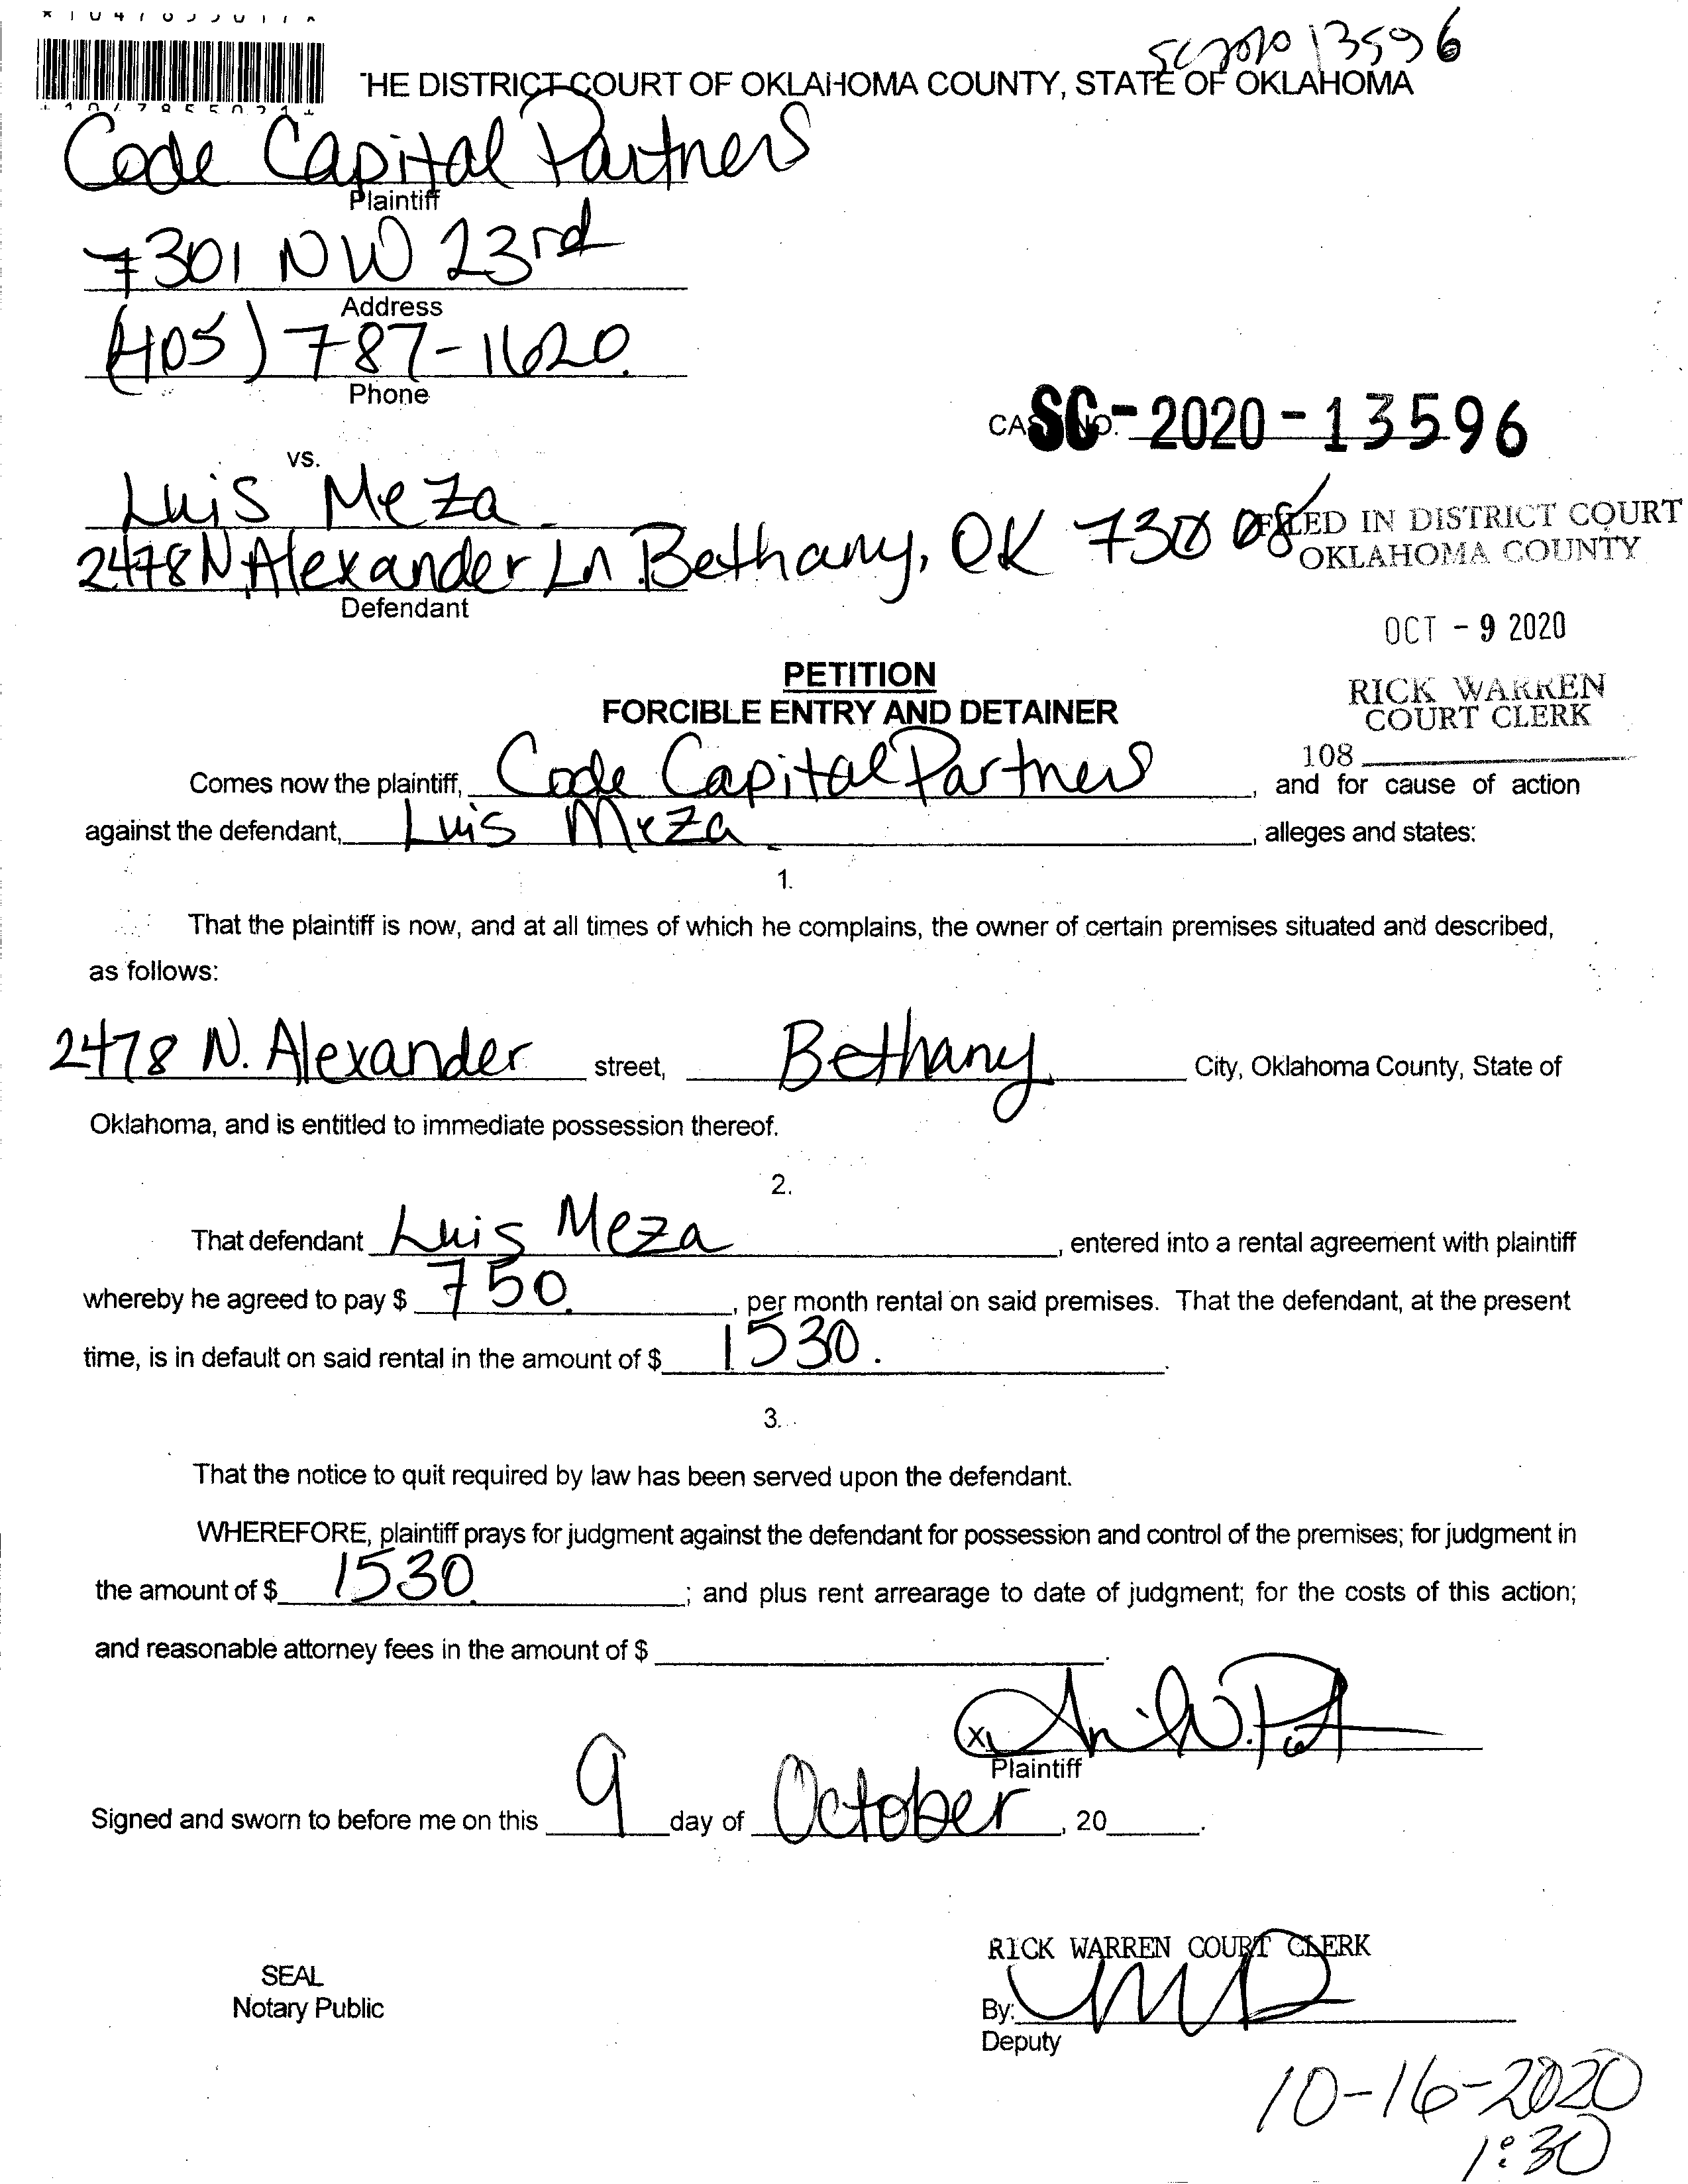 SC2020 13596
THE DISTRICT COURT OF OKLAHOMA COUNTY, STATE OF OKLAHOMA
Code Capital Partners
Plaintiff
7301 NW 23rd
Address
(405) 787-1620
Phone
CASE NO. SC-2020-13596
vs.
Luis Meza
2478 N Alexander Ln Bethany, OK 73008
Defendant
FILED IN DISTRICT COURT
OKLAHOMA COUNTY
OCT - 9 2020
RICK WARREN
COURT CLERK
108
PETITION
FORCIBLE ENTRY AND DETAINER
Comes now the plaintiff, Code Capital Partners, and for cause of action
against the defendant, Luis Meza, alleges and states:
1.
That the plaintiff is now, and at all times of which he complains, the owner of certain premises situated and described,
as follows:
2478 N. Alexander street, Bethany City, Oklahoma County, State of
Oklahoma, and is entitled to immediate possession thereof.
2.
That defendant Luis Meza, entered into a rental agreement with plaintiff
whereby he agreed to pay $ 750, per month rental on said premises. That the defendant, at the present
time, is in default on said rental in the amount of $ 1530.
3.
That the notice to quit required by law has been served upon the defendant.
WHEREFORE, plaintiff prays for judgment against the defendant for possession and control of the premises; for judgment in
the amount of $ 1530; and plus rent arrearage to date of judgment; for the costs of this action;
and reasonable attorney fees in the amount of $ .
X
Plaintiff
Signed and sworn to before me on this 9 day of October, 20 .
RICK WARREN COURT CLERK
SEAL
Notary Public
By:
Deputy
10-16-2020
1:30